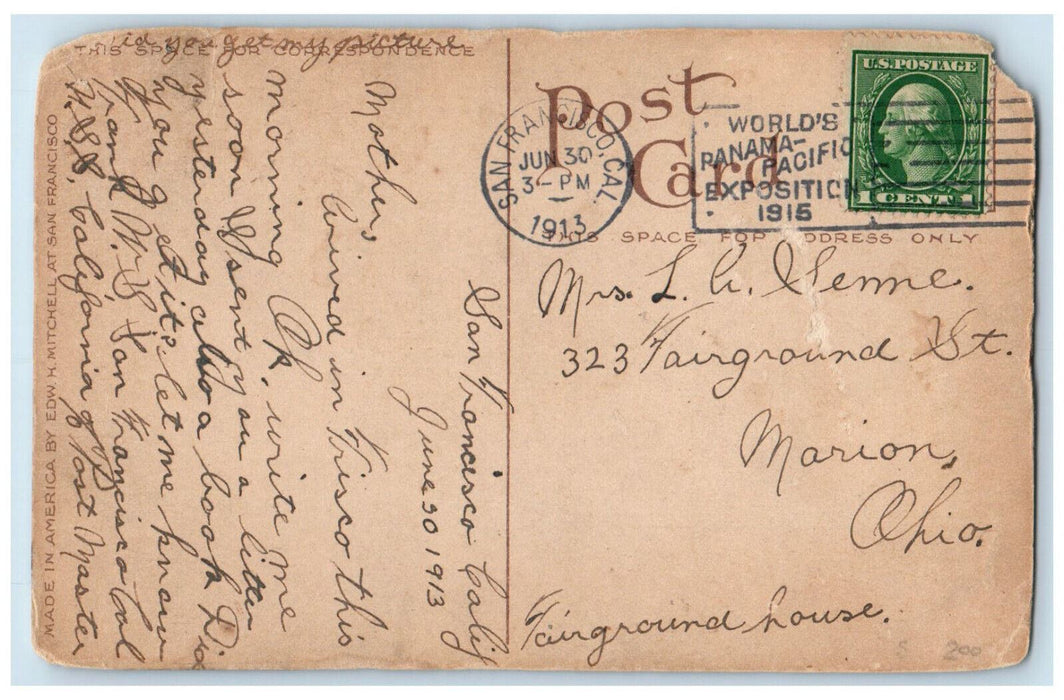 THIS SPACE FOR CORRESPONDENCE
San Francisco Calif
June 30 1913
Mother,
Arived in Frisco this
morning Ok. write me
soon I sent you a letter
yesterday also a book Did
you get it. let me know
Frank W. S San Francisco Cal
U.S.S. California % Post Master
did you get my picture
MADE IN AMERICA BY EDW. H. MITCHELL AT SAN FRANCISCO
Post
Card
SAN FRANCISCO, CAL.
JUN 30
3-PM
1913
WORLD'S
PANAMA-
PACIFIC
EXPOSITION
1915
U.S. POSTAGE
1 CENT 1
THIS SPACE FOR ADDRESS ONLY
Mrs. L. A. Senne.
323 Fairground St.
Marion,
Ohio.
Fairground house.
S 200